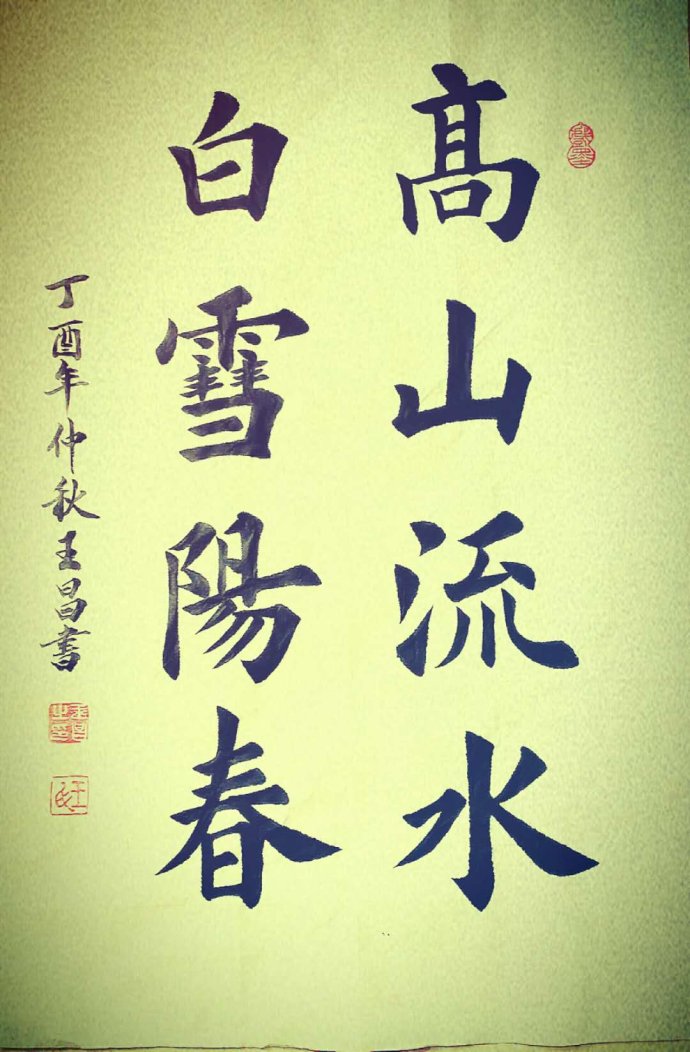 髙山流水
白雪陽春
丁酉年仲秋王昌書